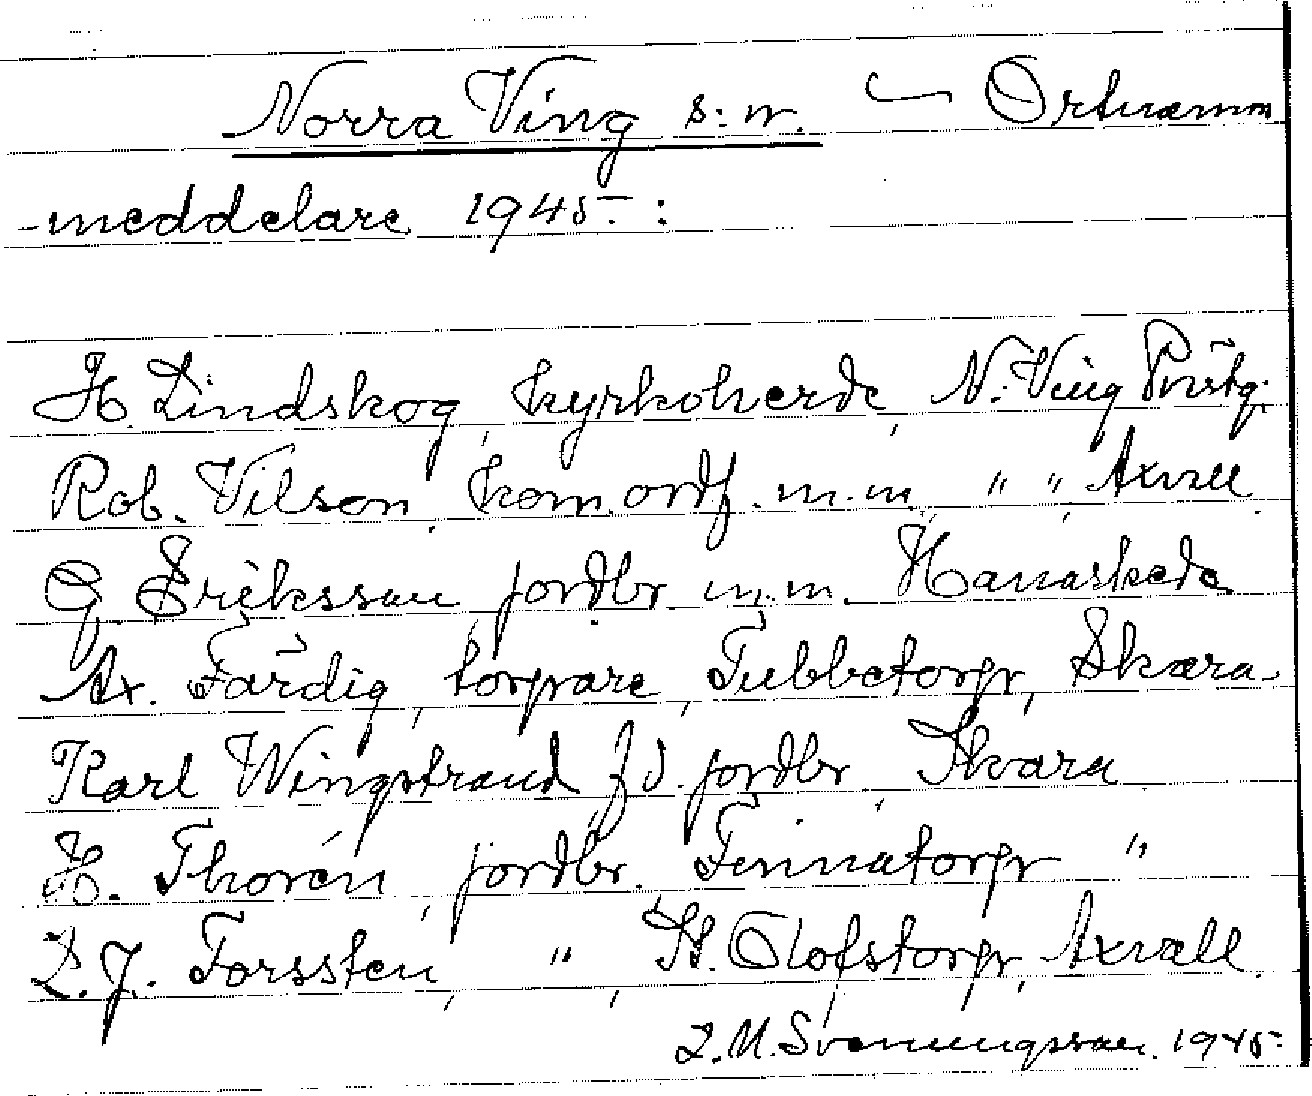 Norra Ving s:n. Ortnamns
meddelare 1945:
H. Lindskog, kyrkoherde, N. Ving Prästg.
Rob. Vilson, kom.ordf. m.m., " ", Axvall.
G. Eriksson jordbr. m.m. Hanaskede
Ax. Färdig, torpare, Tubbetorp, Skara.
Karl Wingstrand f.d. jordbr., Skara
H. Thorén, jordbr. Finnatorp "
L.J. Forssten, " St. Olofstorp, Axvall.
1945